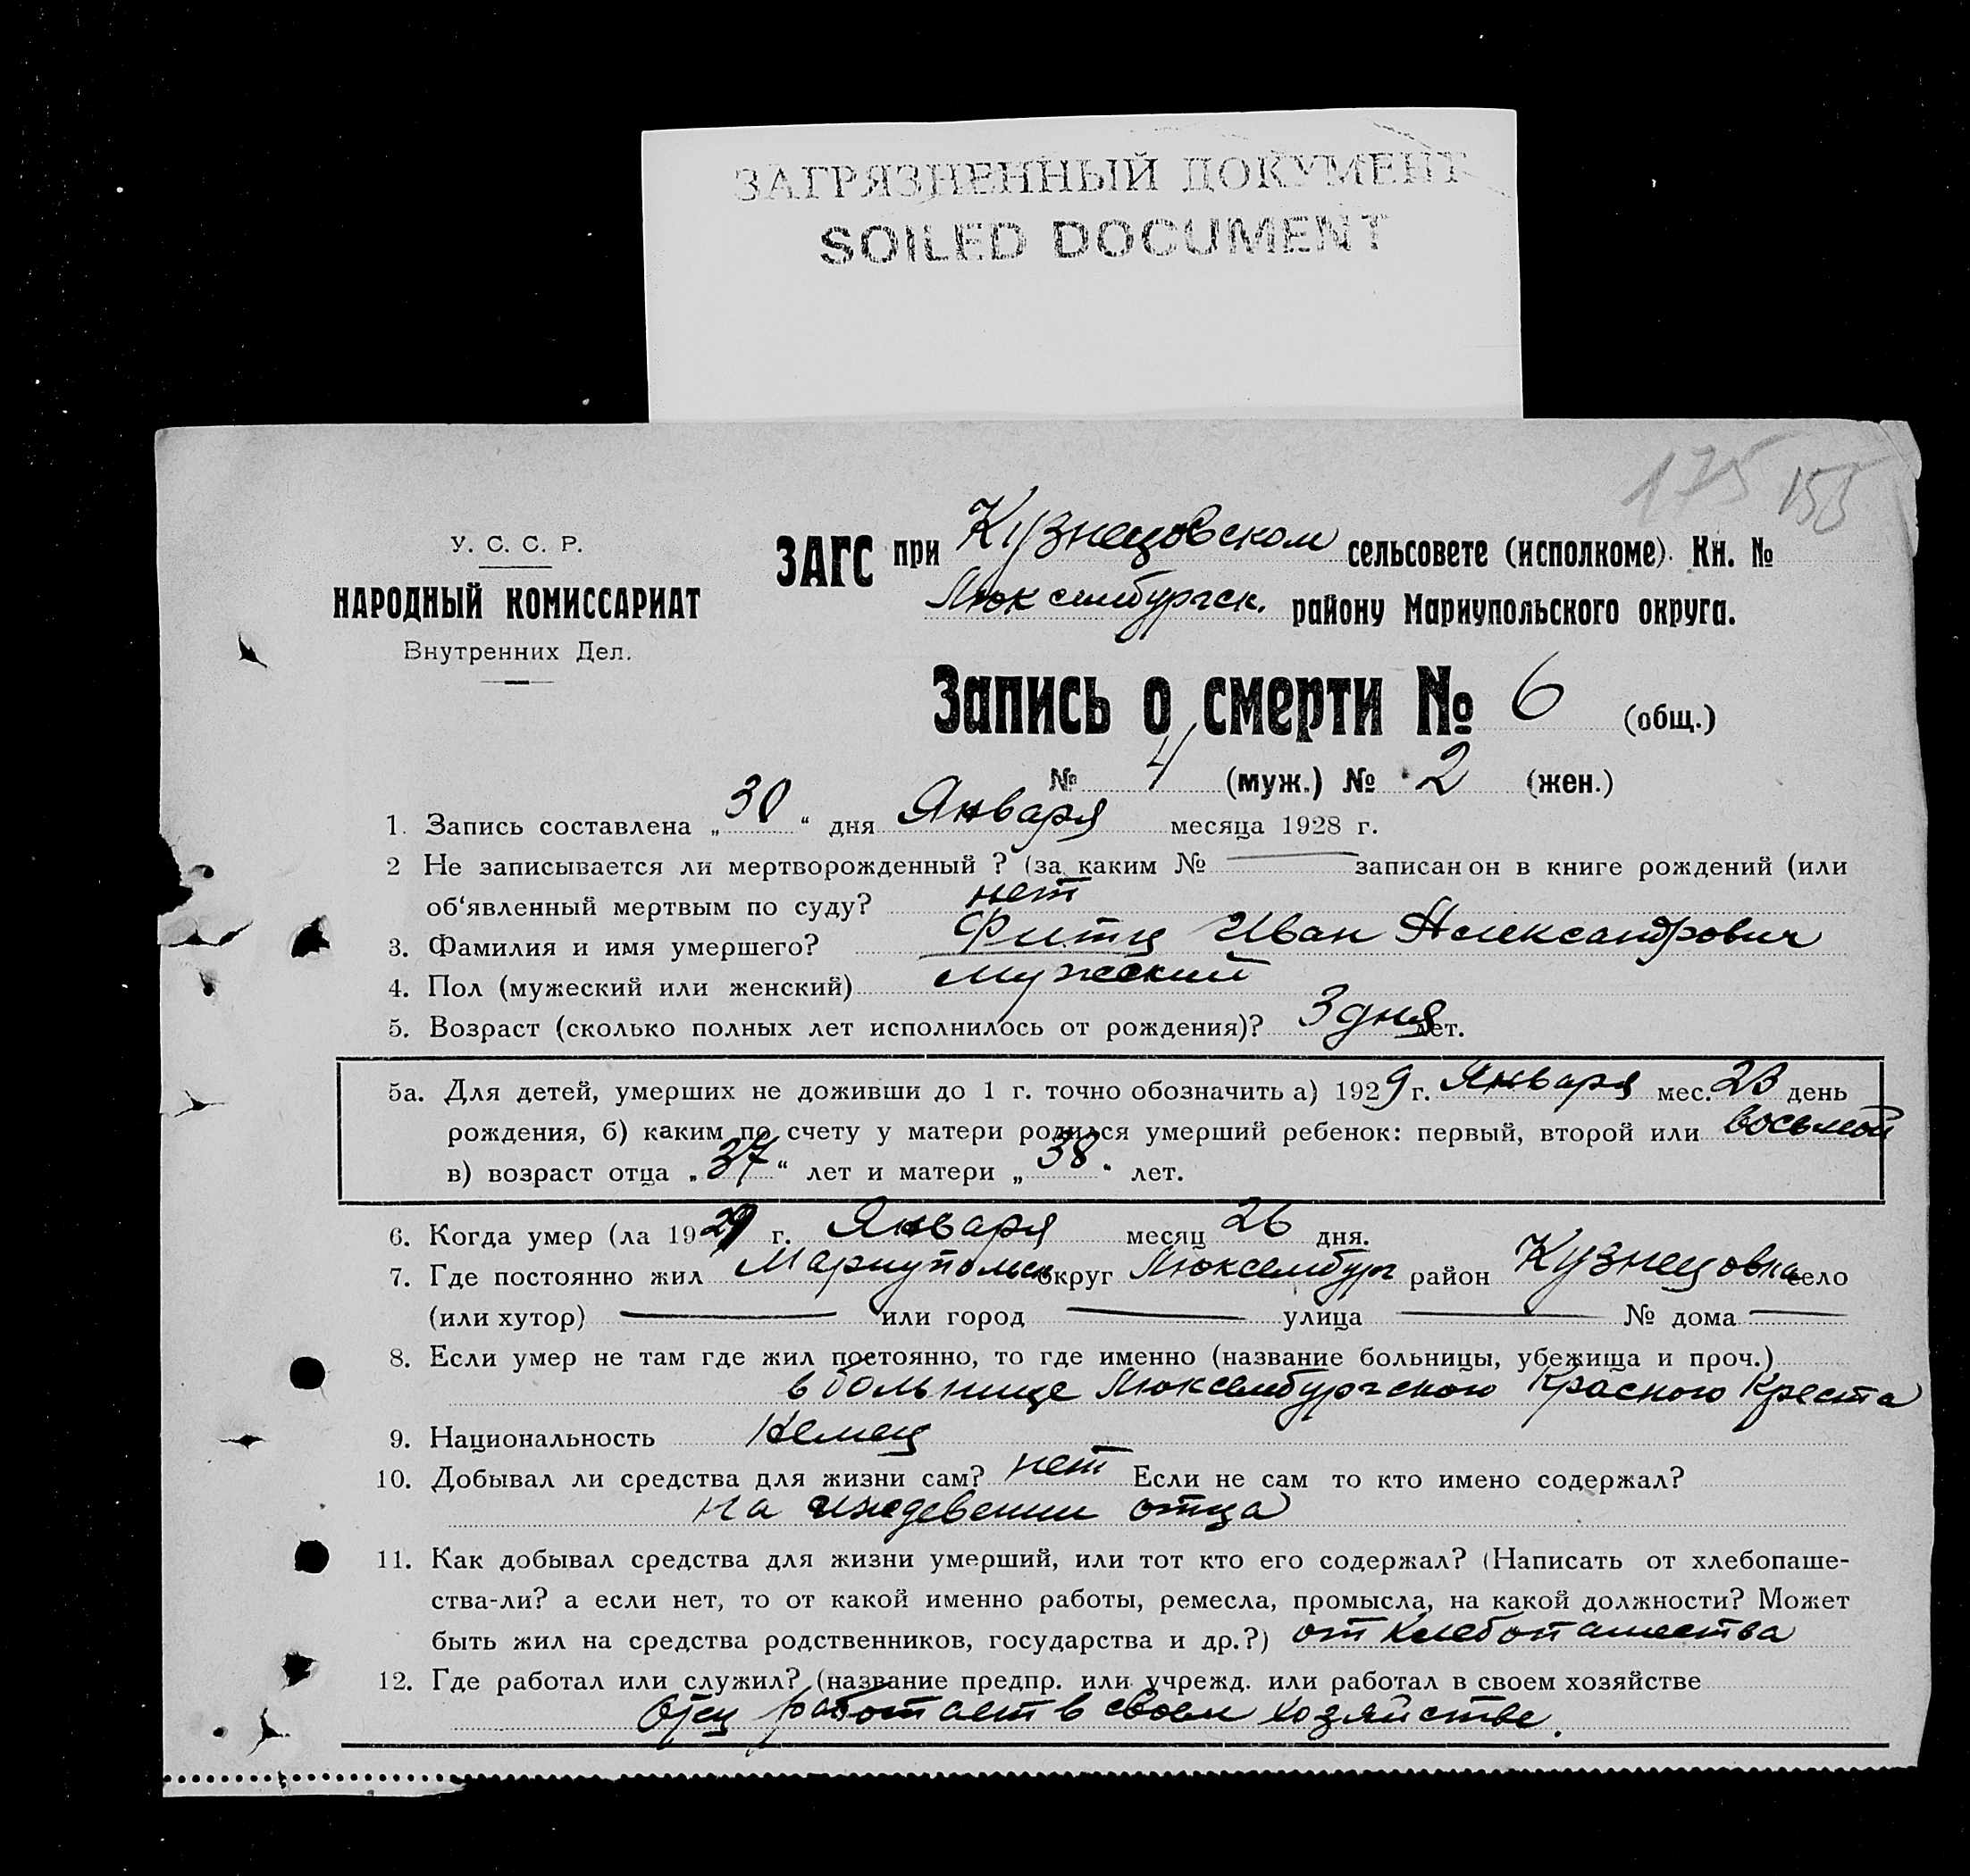 ЗАГРЯЗНЕННЫЙ ДОКУМЕНТ
SOILED DOCUMENT
175 155
У. С. С. Р.
НАРОДНЫЙ КОМИССАРИАТ
Внутренних Дел.
ЗАГС при Кузнецовском сельсовете (исполкоме). Кн. №
Люксембургск. району Мариупольского округа.
Запись о смерти № 6 (общ.)
№ 4 (муж.) № 2 (жен.)
1. Запись составлена „30“ дня Января месяца 1928 г.
2 Не записывается ли мертворожденный ? (за каким № — записан он в книге рождений (или
об‘явленный мертвым по суду? нет
3. Фамилия и имя умершего? Фитц Иван Александрович
4. Пол (мужеский или женский) мужеский
5. Возраст (сколько полных лет исполнилось от рождения)? 3 дня лет.
5а. Для детей, умерших не доживши до 1 г. точно обозначить а) 1929 г. Января мес. 23 день
рождения, б) каким по счету у матери родился умерший ребенок: первый, второй или восьмой
в) возраст отца „37“ лет и матери „38“ лет.
6. Когда умер (ла 1929 г. Января месяц 26 дня.
7. Где постоянно жил Мариупольск округ Люксембург район Кузнецовка село
(или хутор) — или город — улица — № дома —
8. Если умер не там где жил постоянно, то где именно (название больницы, убежища и проч.)
в больнице Люксембургского Красного Креста
9. Национальность Немец
10. Добывал ли средства для жизни сам? нет Если не сам то кто имено содержал?
на иждевении отца
11. Как добывал средства для жизни умерший, или тот кто его содержал? (Написать от хлебопаше-
ства-ли? а если нет, то от какой именно работы, ремесла, промысла, на какой должности? Может
быть жил на средства родственников, государства и др.?) от хлебопашества
12. Где работал или служил? (название предпр. или учрежд. или работал в своем хозяйстве
Отец работает в своем хозяйстве.